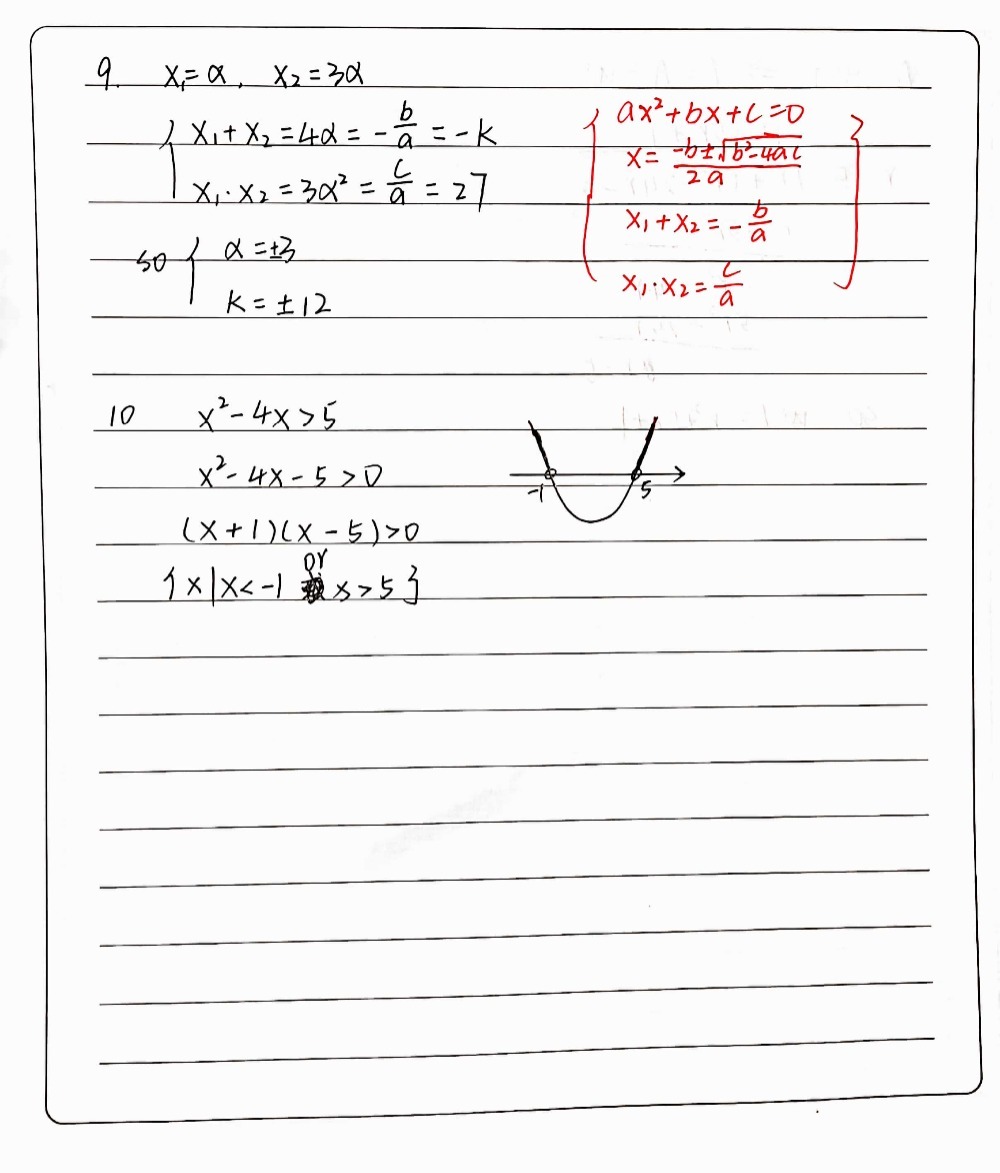 9. x₁=α, x₂=3α
{ x₁+x₂=4α=-b/a=-k
x₁·x₂=3α²=c/a=27
so { α=±3
k=±12
{ ax²+bx+c=0 }
x=(-b±√(b²-4ac))/2a
x₁+x₂=-b/a
x₁·x₂=c/a
10 x²-4x>5
x²-4x-5>0
(x+1)(x-5)>0
{x|x<-1 or x>5}
-1 5